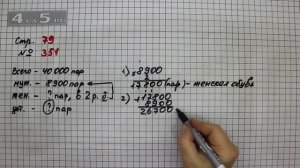 4 по 5
Стр. 79
№ 351
Всего - 40 000 пар
муж. - 8900 пар
жен. - ? пар, в 2 р. б.
дет. - ? пар
1) × 8900
2
17800 (пар) - женская обувь
2) + 17800
8900
26700